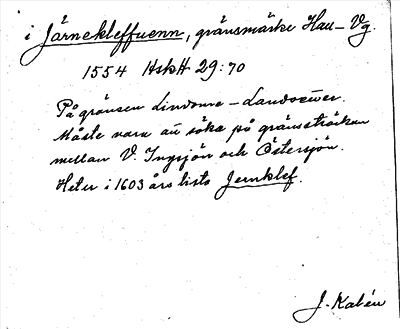 i Järnekleffuenn, gränsmärke Hall-Vg.
1554 HskH 29:70
På gränsen Lindome - Landvetter.
Måste vara att söka på gränssträckan
mellan V. Ingsjön och Östersjön.
Heter i 1603 års lista Jernklef.
J. Kalén